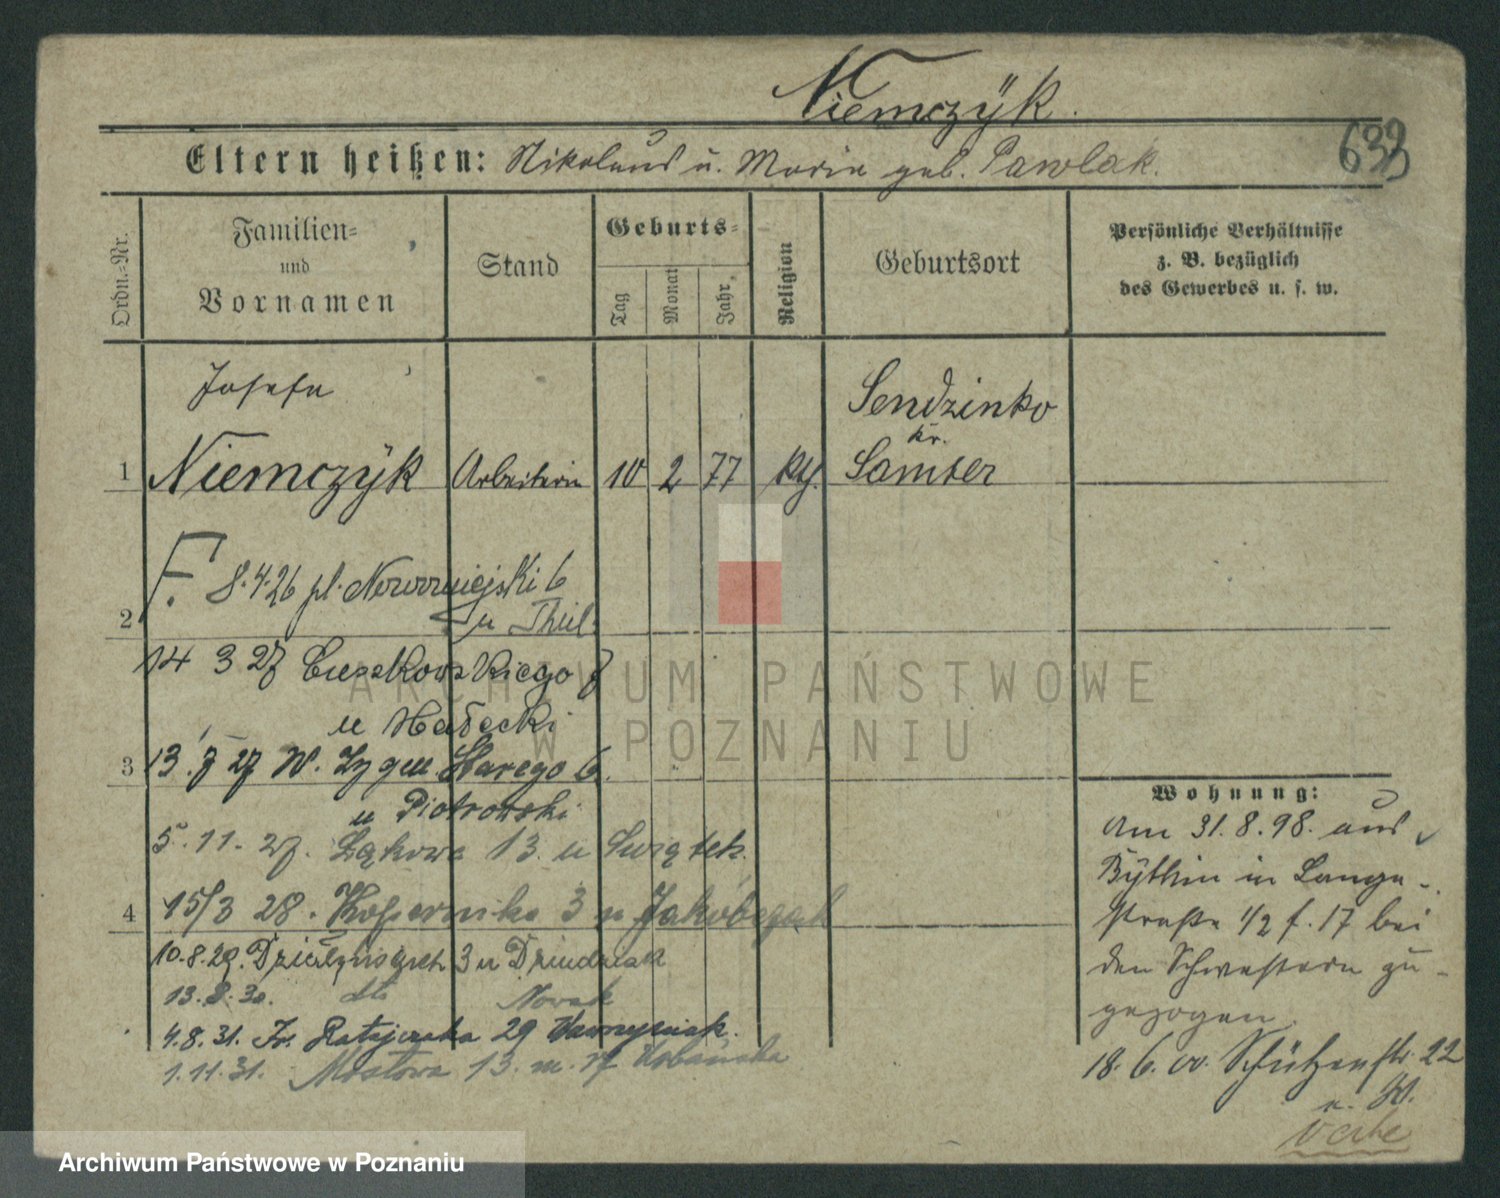 Niemczÿk.
Eltern heißen: Nikolaus u. Maria geb. Pawlak.
633
Ordn.-Nr.
Familien-
und
Vornamen
Stand
Geburts-
Tag
Monat
Jahr
Religion
Geburtsort
Persönliche Verhältnisse
z. B. bezüglich
des Gewerbes u. s. w.
Josefa
Sendzinko
kr.
1 Niemczÿk Arbeiterin 10 2 77 kth. Samter
F. 8.4.26 pl. Nowomiejski 6
2 u Thiel
14 3 27 Cieszkowskiego 7
u Hałecki
3 13. 7 27 W. Zygm. Starego 6.
u Piotrowski
5. 11. 27. Łąkowa 13. u Świątek.
4 15/3 28. Kopernika 3 u Jakóbczak
10.8.29. 3 u Dziudziak
13.8.30. dto Nowak
4.8.31. Fr. Ratajczaka 29 Wawrzyniak.
1.11.31. Mostowa 13. m. 17 Urbańska
Wohnung:
Am 31.8.98. aus
Bÿthin in Lange-
straße 1/2 f. 17 bei
den Schwestern zu-
gezogen.
18.6.00. Schützenstr. 22
u. W.
ARCHIWUM PAŃSTWOWE
W POZNANIU
Archiwum Państwowe w Poznaniu